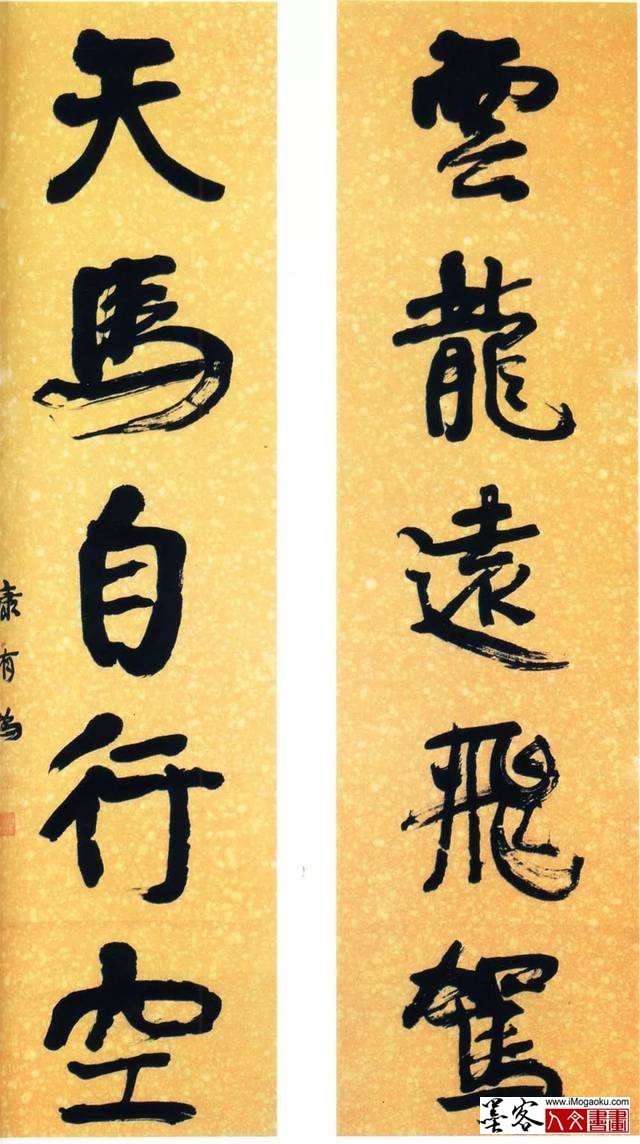 雲龍遠飛駕
天馬自行空
康有為
www.iMogaoku.com
墨客人文書畫